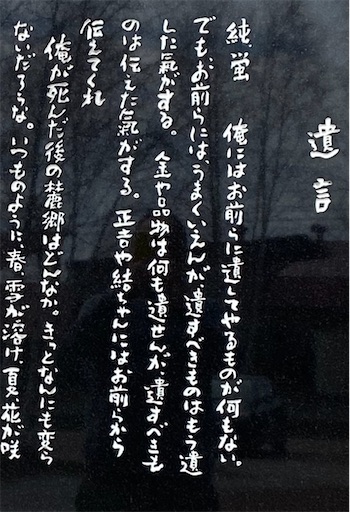 遺言
純 蛍　俺にはお前らに遺してやるものが何もない。
でも、お前らには、うまくいえんが遺すべきものはもう遺
した氣がする。金や品物は何も遺せんが、遺すべきも
のは伝えた氣がする。正吉や結ちゃんにはお前らから
伝えてくれ
俺が死んだ後の麓郷はどんなか。きっとなんにも変ら
ないだろうな。いつものように、春、雪が溶け、夏、花が咲